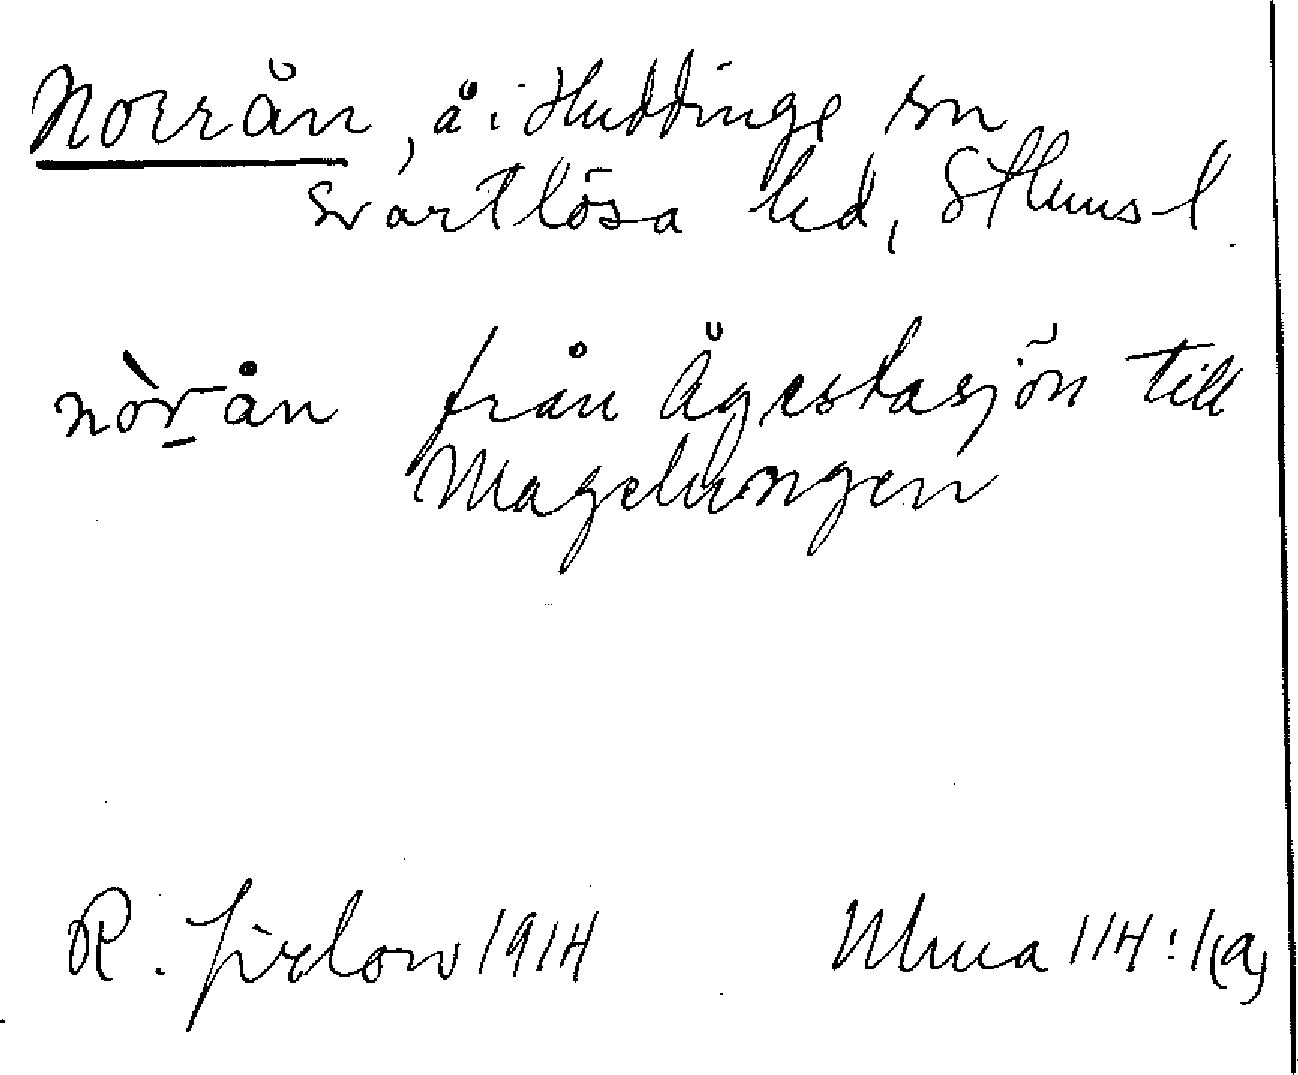 Norrån, å i Huddinge sn
Svartlösa hd, Sthms l.
nòr̲ån från Ågestasjön till
Magelungen
R. Jirlow 1914 Ulma 114:1(a)